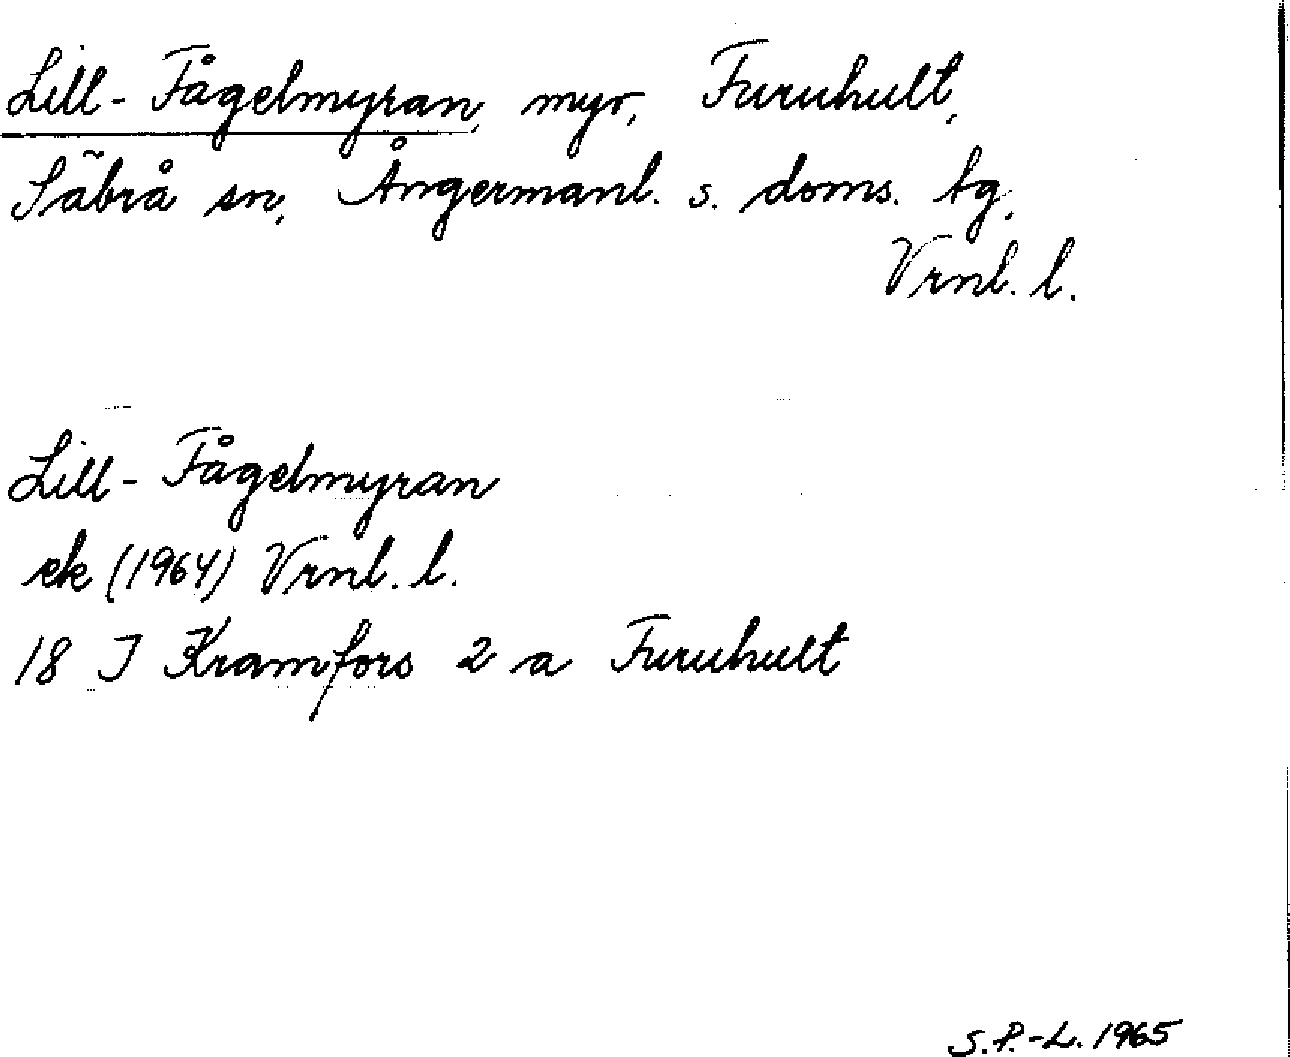 Lill-Fågelmyran, myr, Furuhult,
Säbrå sn, Ångermanl. s. doms. tg,
Vrnl. l.
Lill-Fågelmyran
ek (1964) Vrnl. l.
18 J Kramfors 2 a Furuhult
S.P.-L. 1965